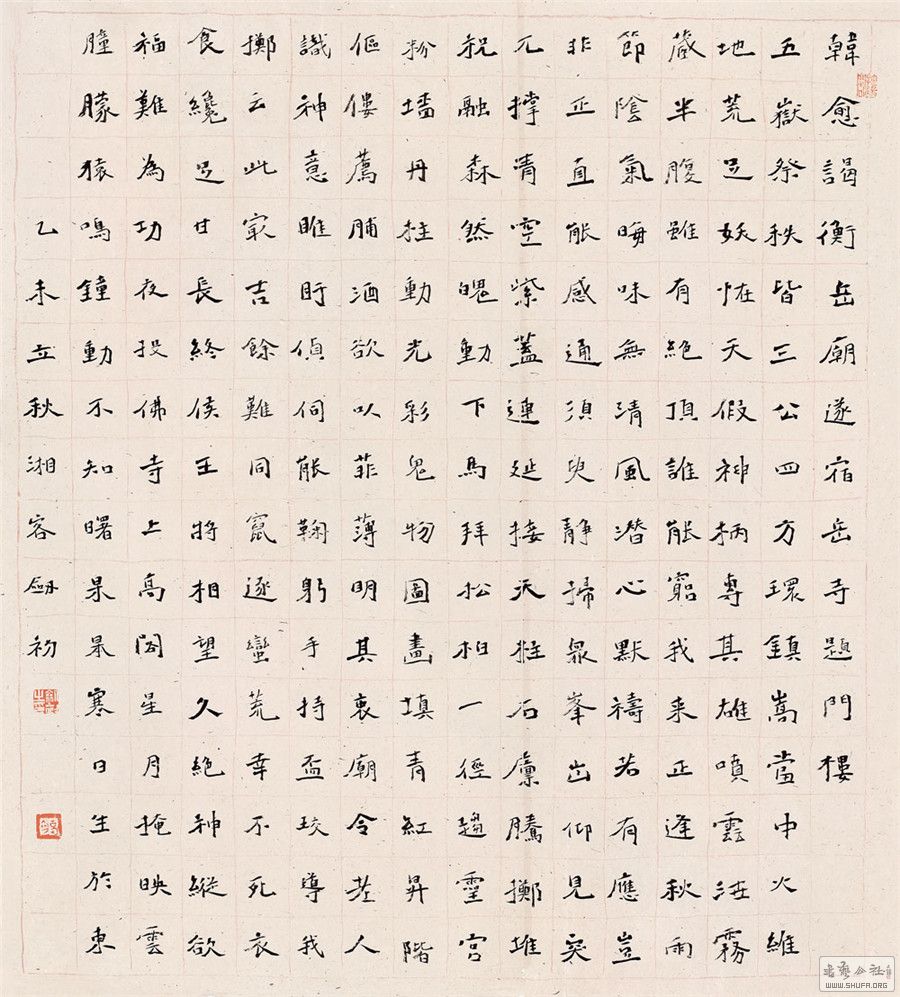 韓愈謁衡岳廟遂宿岳寺題門樓
五嶽祭秩皆三公四方環鎮嵩當中火維
地荒足妖怪天假神柄專其雄噴雲泄霧
藏半腹雖有絕頂誰能窮我來正逢秋雨
節陰氣晦昧無清風潛心默禱若有應豈
非正直能感通須臾靜掃眾峯出仰見突
兀撐青空紫蓋連延接天柱石廩騰擲堆
祝融森然魄動下馬拜松柏一徑趨靈宮
粉墻丹柱動光彩鬼物圖畫填青紅昇階
傴僂薦脯酒欲以菲薄明其衷廟令老人
識神意睢盱偵伺能鞠躬手持盃珓導我
擲云此最吉餘難同竄逐蠻荒幸不死衣
食纔足甘長終侯王將相望久絕神縱欲
福難為功夜投佛寺上高閣星月掩映雲
朣朦猿鳴鐘動不知曙杲杲寒日生於東
乙未立秋湘客劍初
WWW.SHUFA.ORG